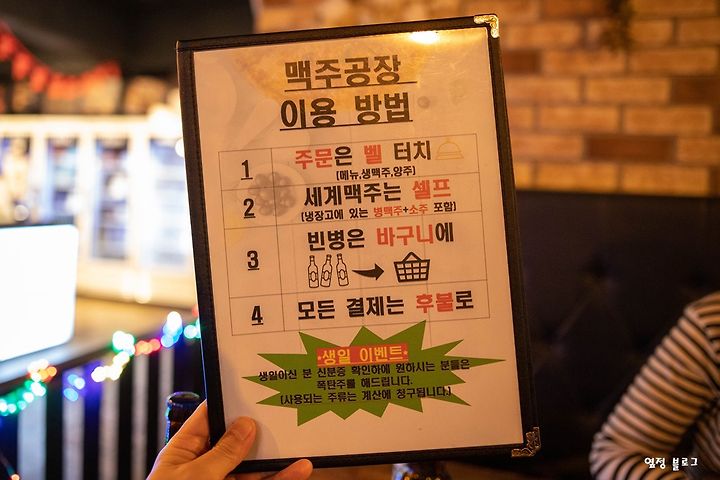 맥주공장
이용 방법
1 주문은 벨 터치
[메뉴,생맥주,양주]
2 세계맥주는 셀프
[냉장고에 있는 병맥주+소주 포함]
3 빈병은 바구니에
4 모든 결제는 후불로
생일 이벤트
생일이신 분 신분증 확인하에 원하시는 분들은
폭탄주를 해드립니다.
(사용되는 주류는 계산에 청구됩니다.)
옆정 블로그